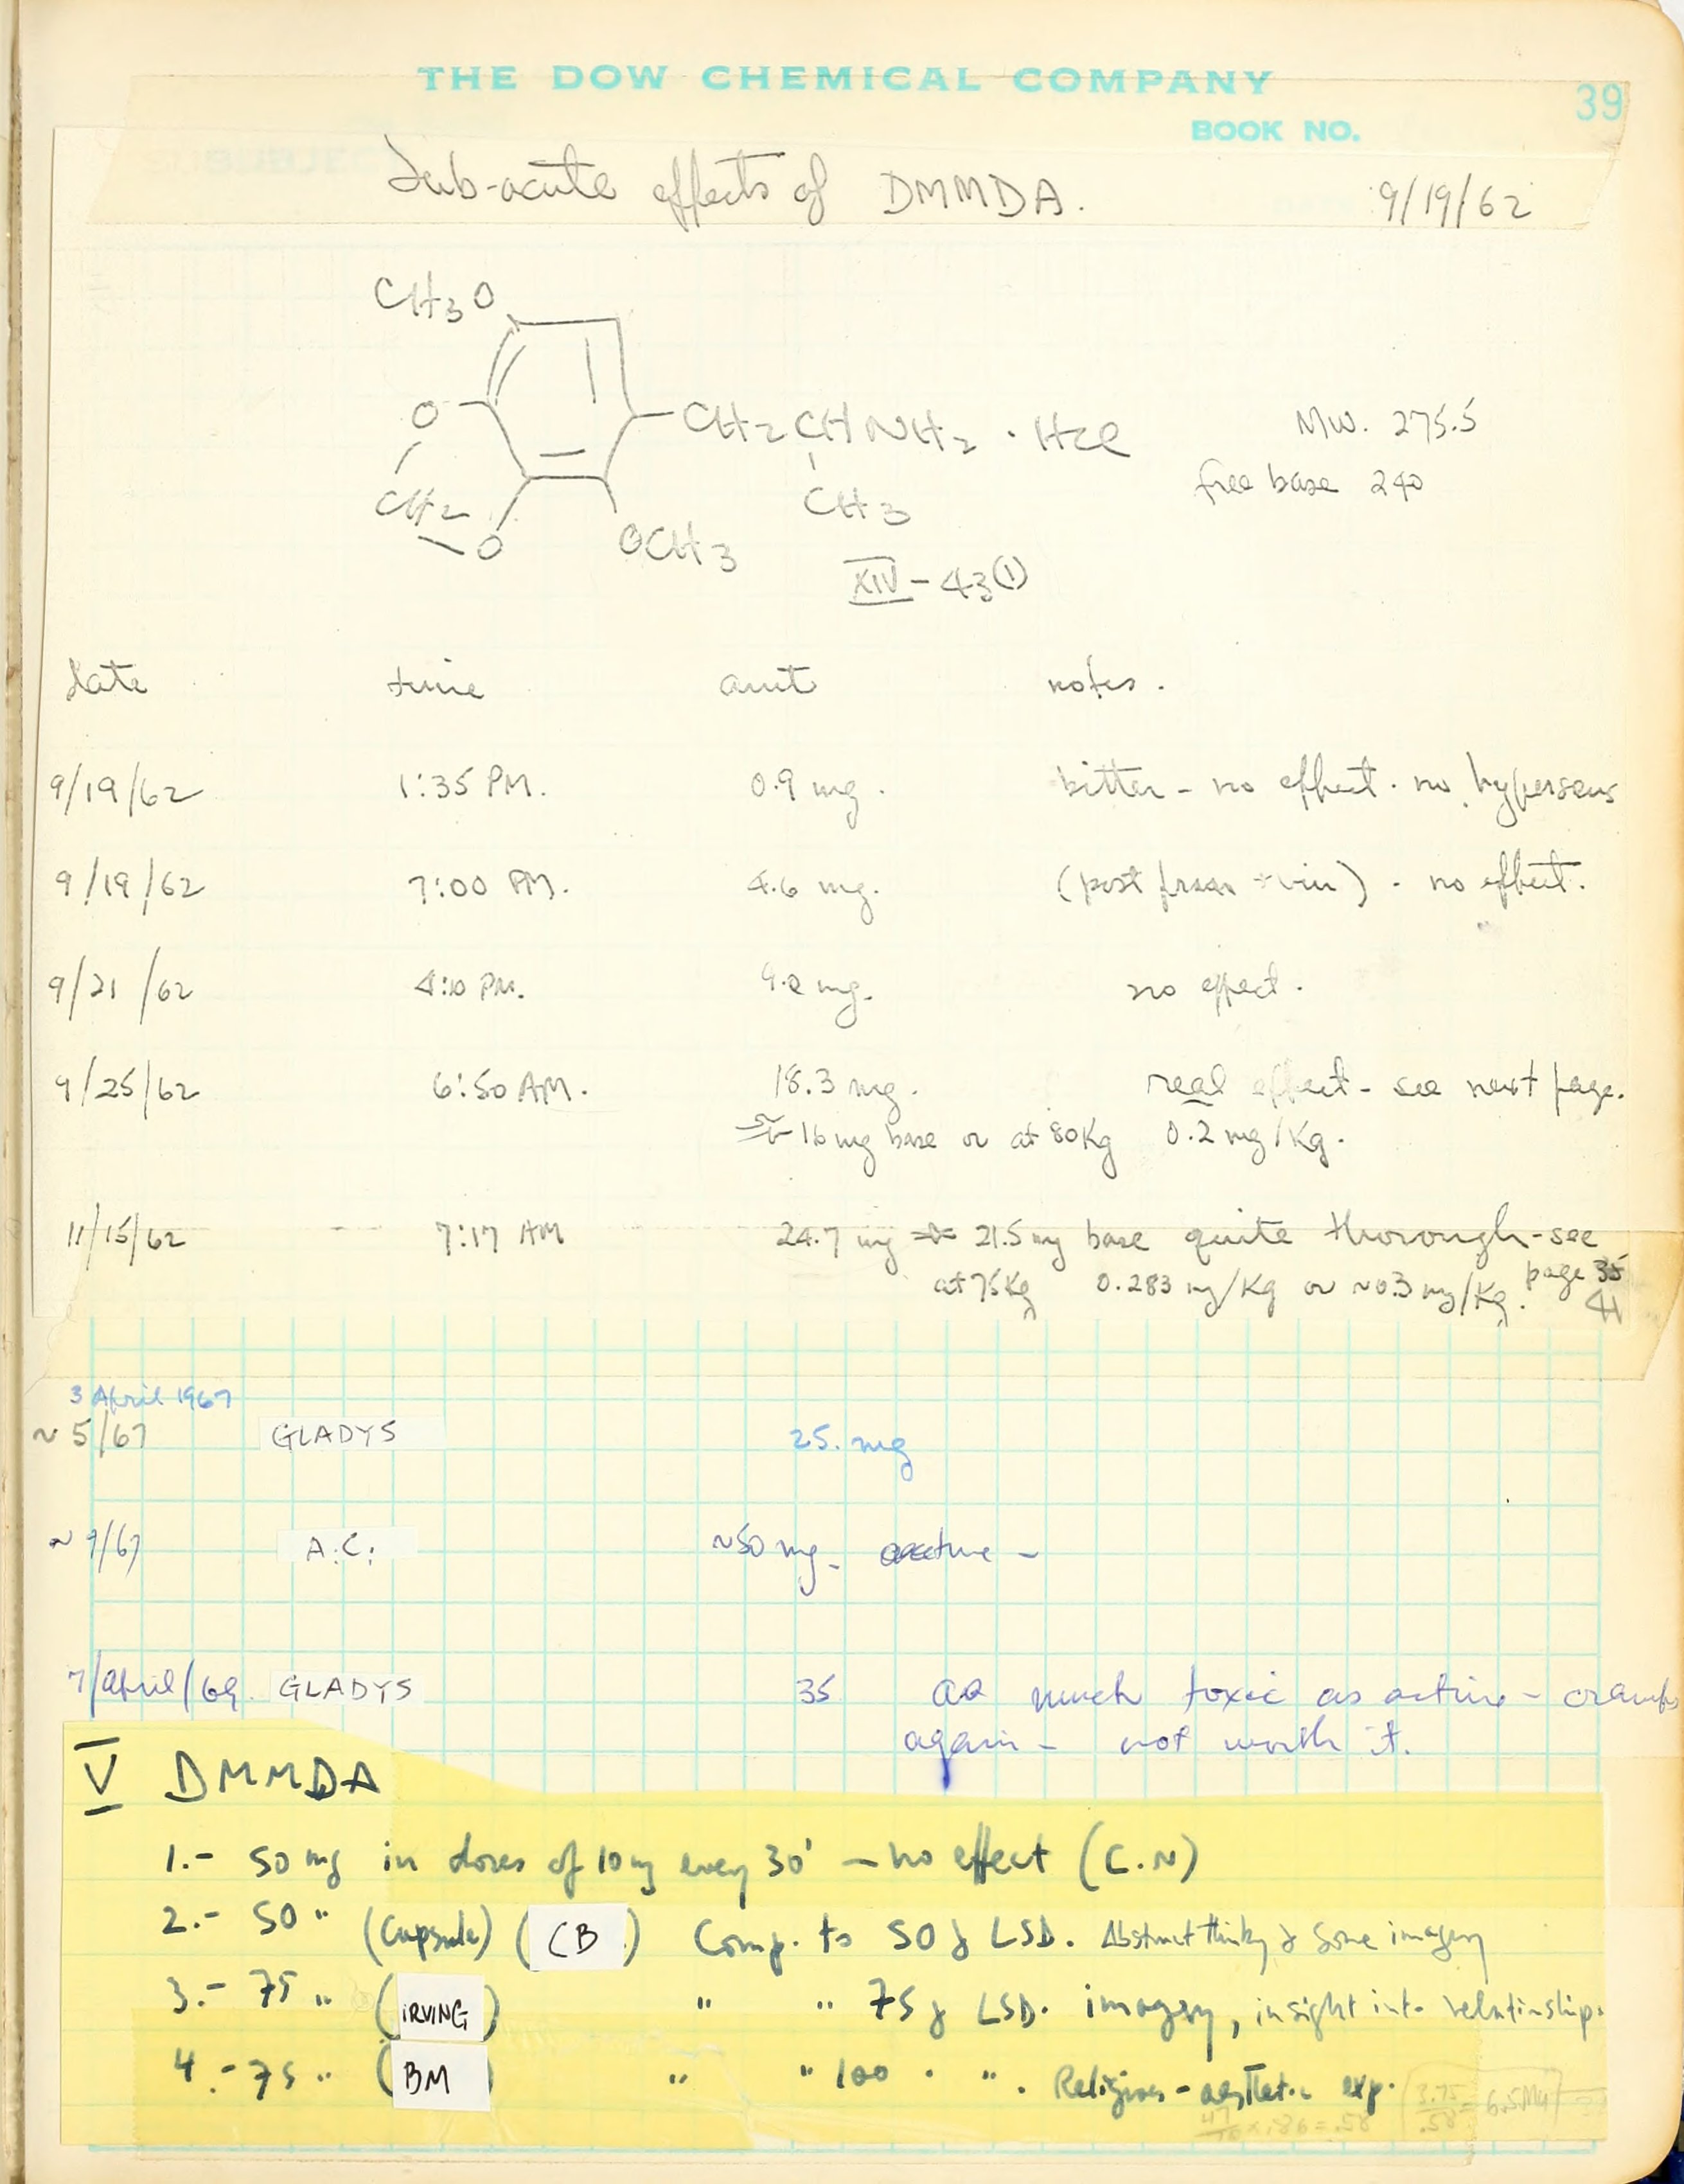 THE DOW CHEMICAL COMPANY
39
BOOK NO.
Sub-acute effects of DMMDA. 9/19/62
CH3O
O CH2CHNH2 · HCl MW. 275.5
CH2 CH3 free base 240
O OCH3
XIV - 43(1)
date time amt notes.
9/19/62 1:35 PM. 0.9 mg. bitter - no effect. no hypersens
9/19/62 7:00 PM. 4.6 mg. (post) - no effect.
9/21/62 4:10 PM. mg. no effect.
9/25/62 6:50 AM. 18.3 mg. real effect - see next page.
≈ 16 mg base or at 80Kg 0.2 mg/Kg.
11/15/62 7:17 AM 24.7 mg ≈ 21.5 mg base quite thorough - see
at 75Kg 0.283 mg/Kg or ~0.3 mg/Kg. page 35
41
3 April 1967
~ 5/67 GLADYS 25. mg
~ 9/67 A.C. ~50 mg - active -
7/april/69. GLADYS 35 as much toxic as active - cramps
again - not worth it.
V DMMDA
1.- 50 mg in doses of 10 mg every 30' - no effect (C.N)
2.- 50 " (Capsule) (CB) Comp. to 50 γ LSD. Abstract thinkg & some imagery
3.- 75 " (IRVING) " " 75 γ LSD. imagery, insight into relationships
4.- 75 " (BM) " " 100 " ". Religious - aesthetic exp.
3.75/.58 = 6.5